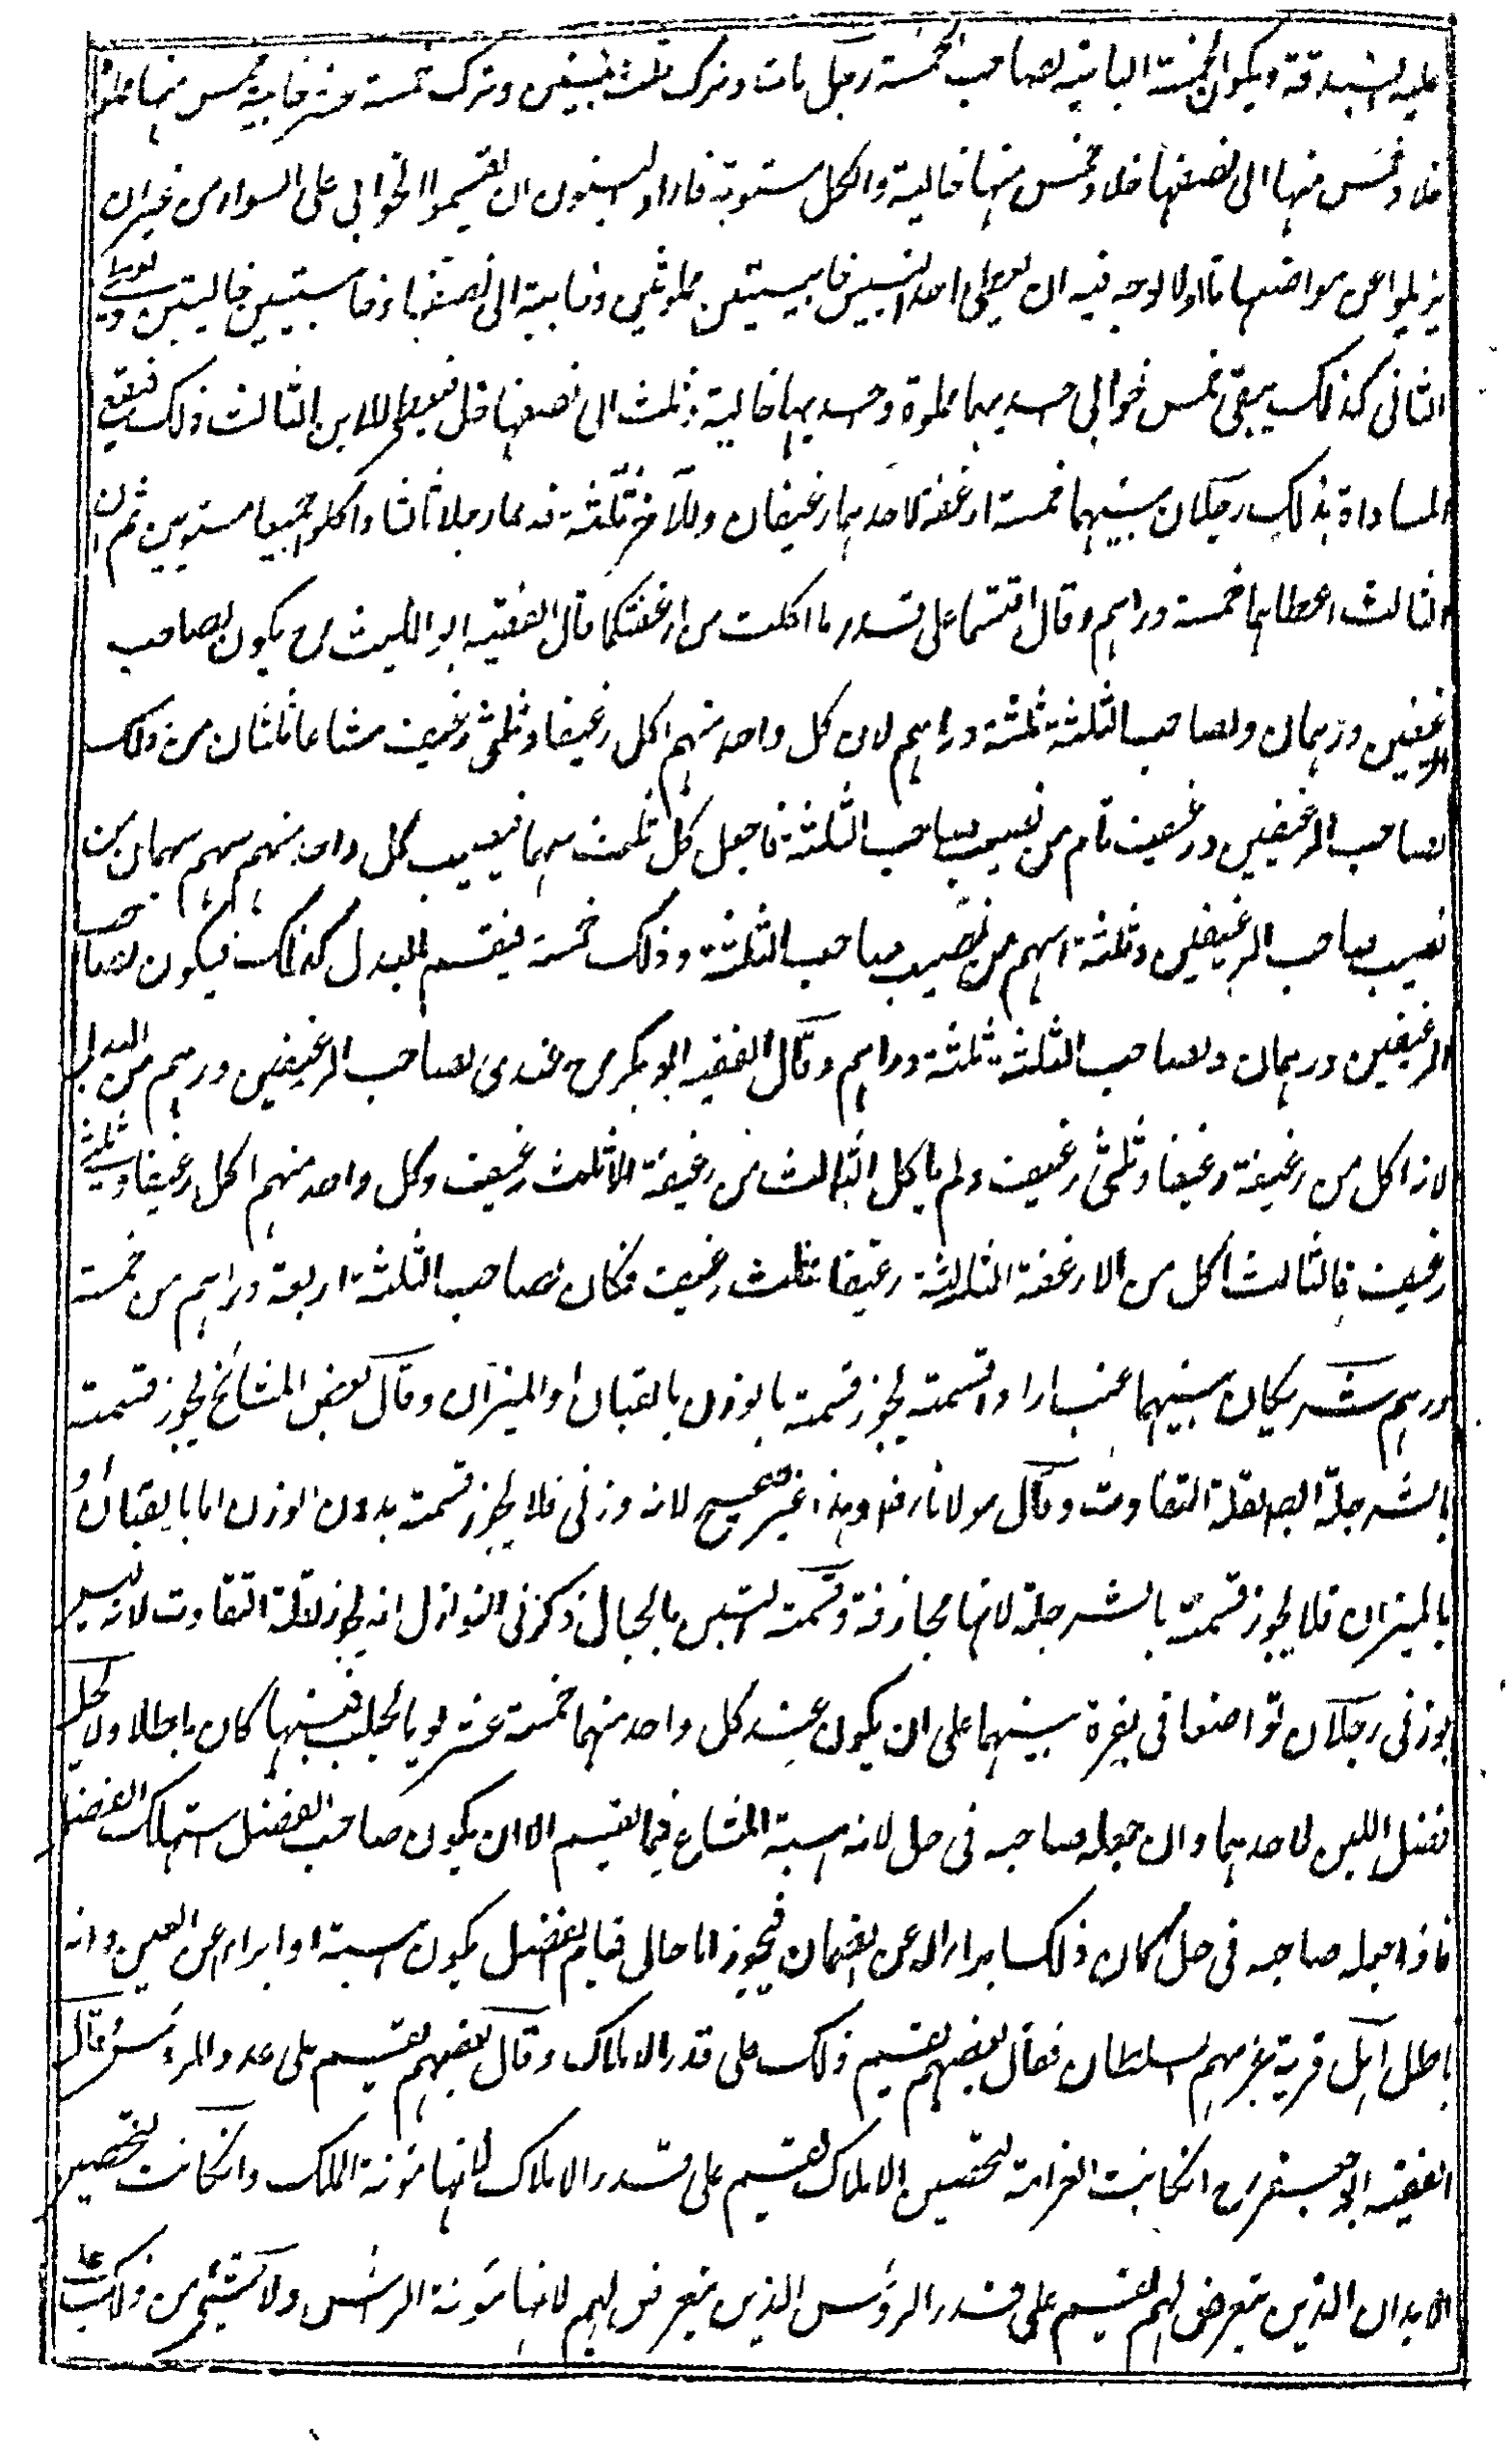 عليه الصدقة ويكون الخمسة الباقية لصاحب الخمسة رجل مات وترك ثلث بنين وترك خمسة عشر خابية خمس منها مملوة
خلا وخمس منها الى نصفها خلا وخمس منها خالية والكل مستوية فاراد البنون ان يقسموا الخوابى على السواء من غير ان
يزيلوا عن مواضعها قالوا الوجه فيه ان يعطى احد البنين خابيتين مملوئتين وخابية الى نصفها وخابيتين خاليتين ويعطى
الثانى كذلك يبقى خمس خوابى احديهما مملوة واحديها خالية وثلث الى نصفها خل فيعطى للابن الثالث ذلك فيقع
المساواة بذلك رجلان بينهما خمسة ارغفة لاحدهما رغيفان وللآخر ثلثة فدعما رجلا ثالثا واكلوا جميعا مستويين ثم ان
الثالث اعطاهما خمسة دراهم وقال اقتسما على قدر ما اكلت من ارغفتكما قال الفقيه ابو الليث رح يكون لصاحب
الرغيفين درهمان ولصاحب الثلثة ثلثة دراهم لان كل واحد منهم اكل رغيفا وثلثى رغيف مشاعا ثلثان من ذلك
لصاحب الرغيفين ورغيف تام من نصيب صاحب الثلثة فاجعل كل ثلث سهما فيصيب كل واحد منهم سهم سهمان من
نصيب صاحب الرغيفين وثلثة اسهم من نصيب صاحب الثلثة وذلك خمسة فيقسم البدل كذلك فيكون لصاحب
الرغيفين درهمان ولصاحب الثلثة ثلثة دراهم وقال الفقيه ابو بكر رح عندى لصاحب الرغيفين درهم من البدل
لانه اكل من رغيفه رغيفا وثلثى رغيف ولم ياكل الثالث من رغيفه الا ثلث رغيف وكل واحد منهم اكل رغيفا وثلثى
رغيف فالثالث اكل من الارغفة الثلثة رغيفا وثلث رغيف فكان لصاحب الثلثة اربعة دراهم من خمسة
دراهم شريكان بينهما عنب ارادا قسمته يجوز قسمته بالوزن بالقبان او الميزان وقال بعض المشائخ يجوز قسمته
بالشرجلة ايضا لقلة التفاوت وقال مولانا رض وهذا غير صحيح لانه وزنى فلا يجوز قسمته بدون الوزن اما بالقبان او
بالميزان فلا يجوز قسمته بالشرجلة لانها مجازفة وقسمة التبن بالحبال ذكر فى النوازل انه يجوز لقلة التفاوت لانه ليس
بوزنى رجلان تواضعا فى بقرة بينهما على ان يكون عند كل واحد منهما خمسة عشر يوما يحلب لبنها كان باطلا ولا يحل
فضل اللبن لاحدهما وان جعله صاحبه فى حل لانه هبة المشاع فيما يقسم الا ان يكون صاحب الفضل استهلك الفضل
فاذا جعله صاحبه فى حل كان ذلك ابراء له عن الضمان فيجوز اما حال قيام الفضل يكون هبة او ابراء عن العين وانه
باطل اهل قرية غرمهم السلطان فقال بعضهم يقسم ذلك على قدر الاملاك وقال بعضهم يقسم على عدد الرؤس وقال
الفقيه ابو جعفر رح ان كانت الغرامة لتحصين الاملاك يقسم على قدر الاملاك لانها مؤنة الملك وان كانت لتحصين
الابدان الذين يتعرض لهم يقسم على قدر الرؤس الذين يتعرض لهم لانها مؤنة الرأس ولا شىء من ذلك على